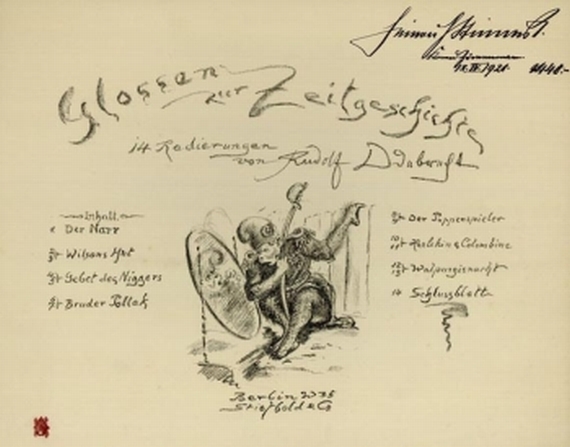 Heinrich Stinnes
1921
Glossen zur Zeitgeschichte
14 Radierungen
von Rudolf
Inhalt.
1 Der Narr
Wilsons Hut
Gebet des Niggers
Bruder Pollak
Der Puppenspieler
Harlekin & Colombine
Walpurgisnacht
14 Schlussblatt
Berlin W 35
Stiefbold & Co